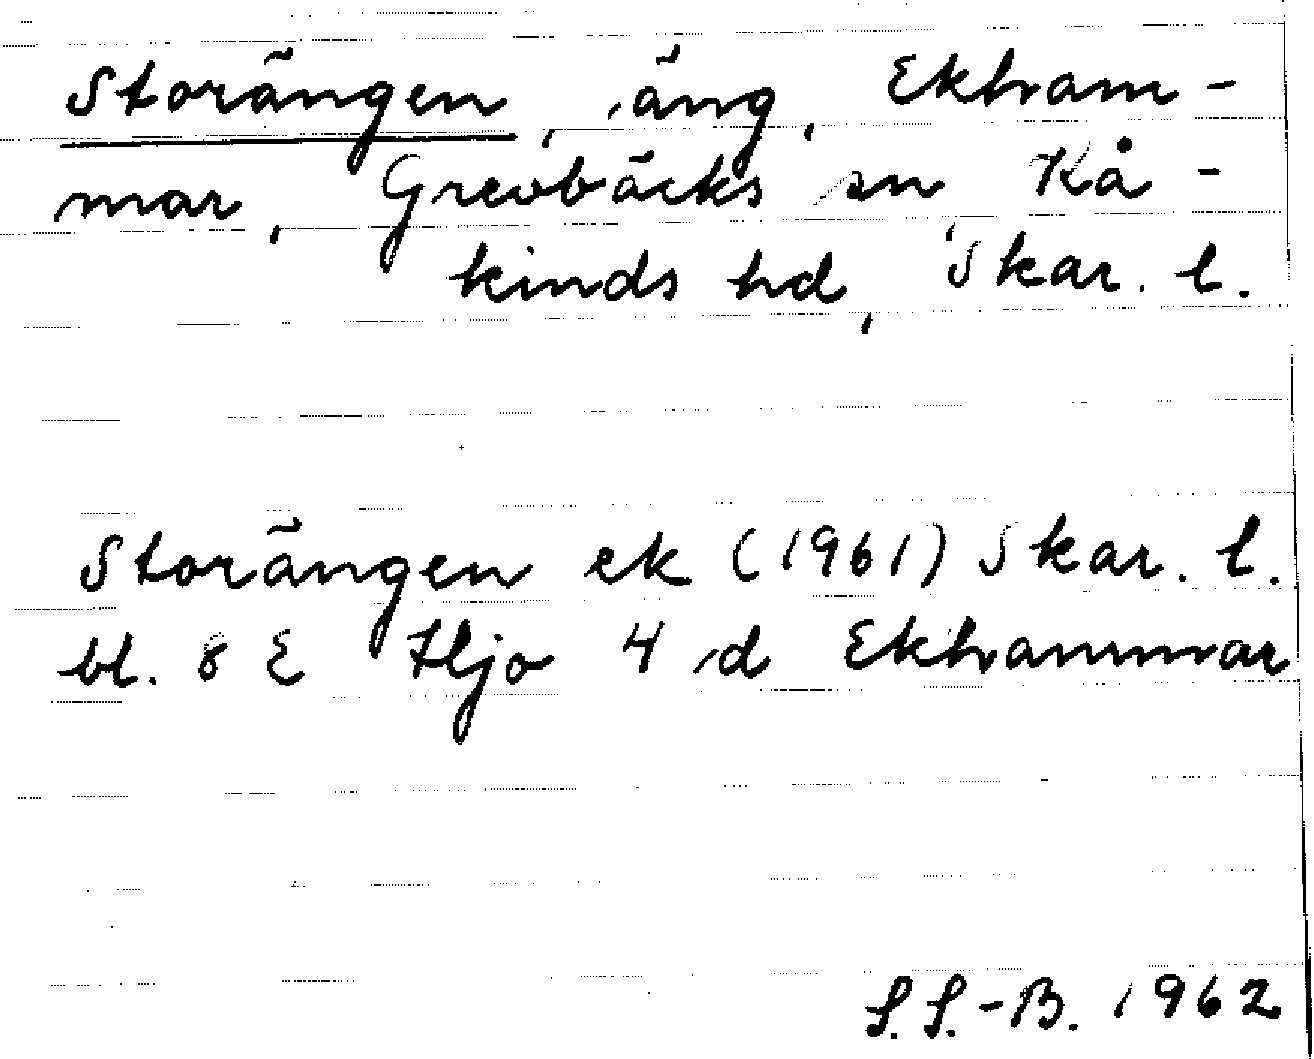 Storängen, äng, Ekham-
mar, Grevbäcks sn, Kå-
kinds hd, Skar. l.
Storängen ek (1961) Skar. l.
bl. 8 E Hjo 4 d Ekhammar
S.S.-B. 1962